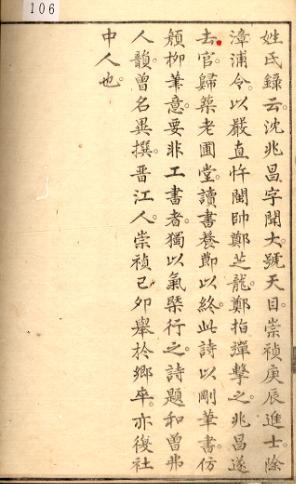 106
姓氏錄云沈兆昌字聞大號天目崇禎庚辰進士除
漳浦令以嚴直忤閩帥鄭芝龍鄭拍彈擊之兆昌遂
去官歸築老圃堂讀書養節以終此詩以剛筆書仿
顏柳筆意要非工書者獨以氣槩行之詩題和曾弗
人韻曾名異撰晋江人崇禎己卯舉於鄉卒亦復社
中人也